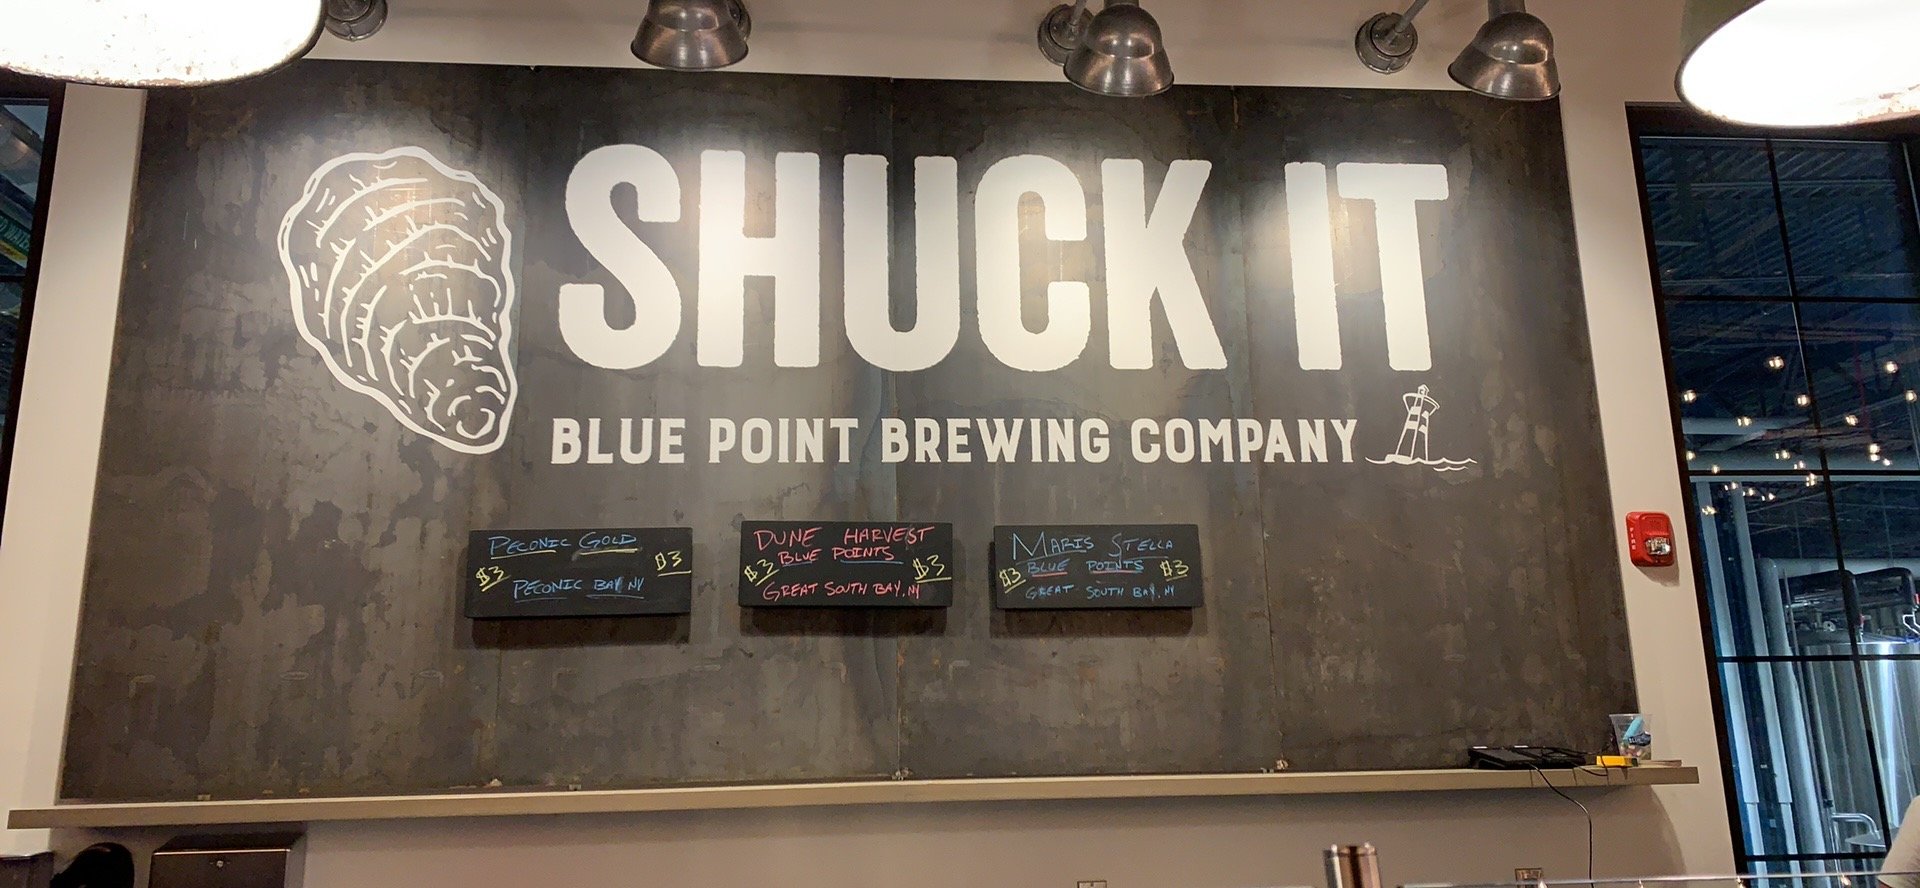 SHUCK IT
BLUE POINT BREWING COMPANY
PECONIC GOLD
$3 $3
PECONIC BAY NY
DUNE HARVEST
BLUE POINTS
$3 $3
GREAT SOUTH BAY, NY
MARIS STELLA
$3 BLUE POINTS $3
GREAT SOUTH BAY, NY
FIRE